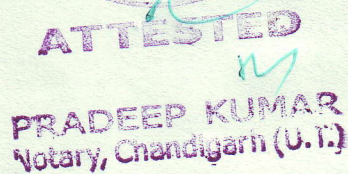 ATTESTED
PRADEEP KUMAR
Notary, Chandigarh (U.T.)